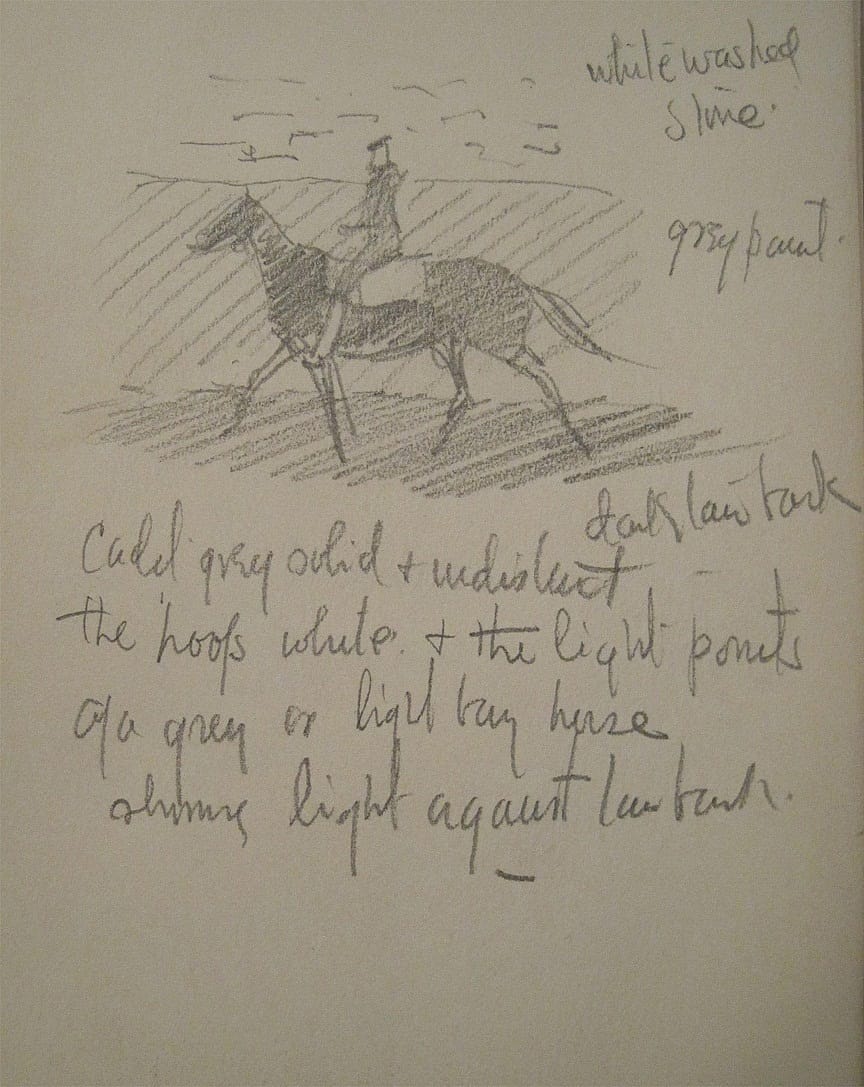 whitewashed
stone.
grey paint.
dark tan bark
grey solid + indistinct
the hoofs white. + the light points
of a grey or light bay horse
shining light against tan bark.